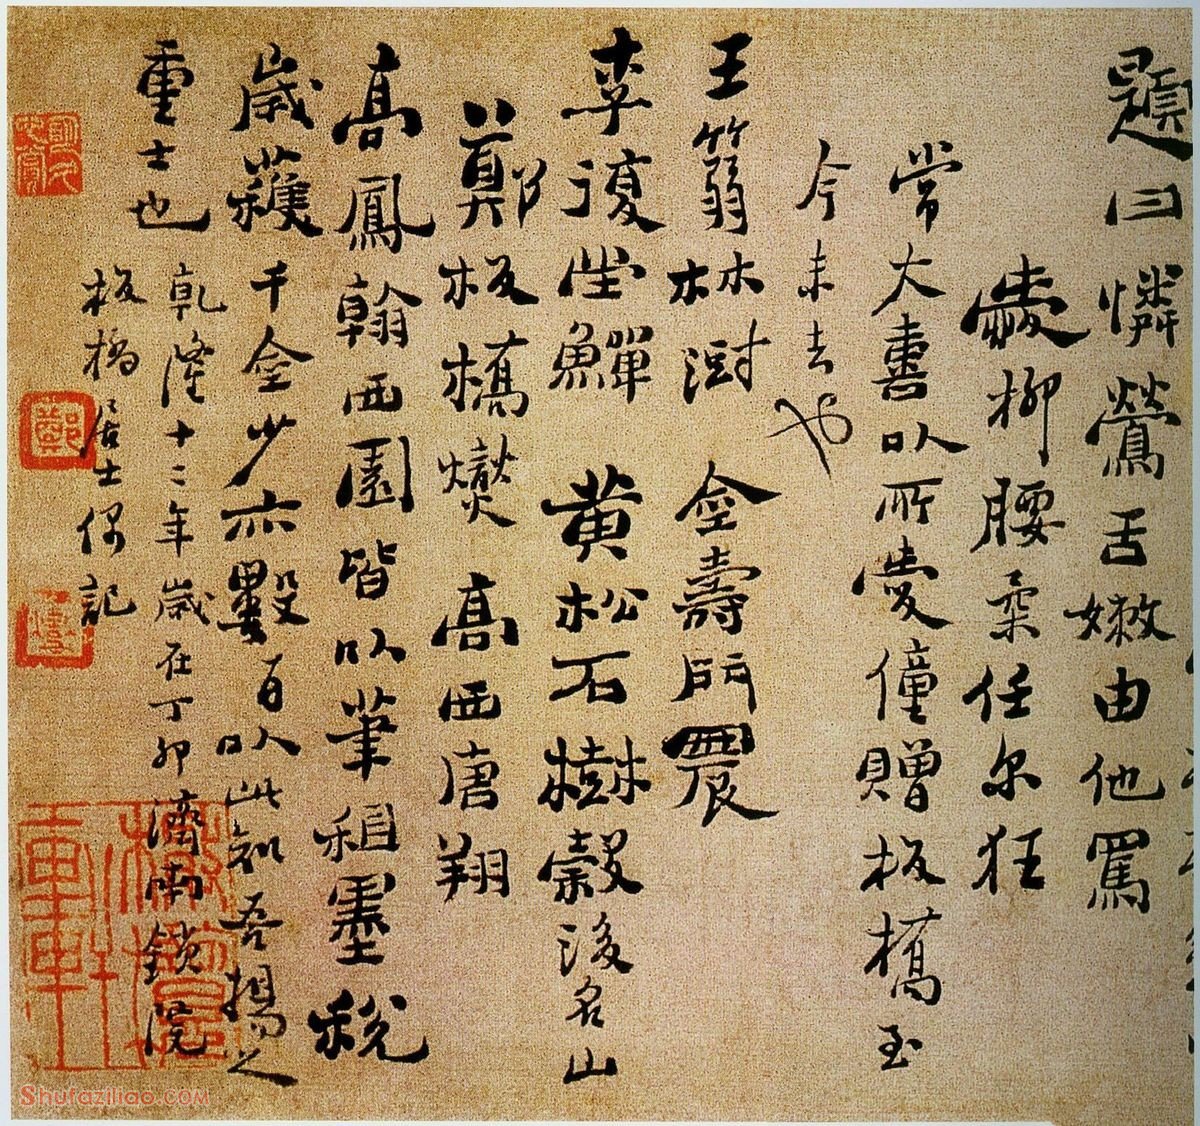 題曰憐鶯舌嫩由他罵
愛柳腰柔任尔狂
常大喜以所愛僮贈板橋至
今未去也
王篛林澍 金壽門農
李復堂鱓 黄松石樹穀後名山
鄭板橋燮 高西唐翔
高鳳翰西園皆以筆租墨稅
歲獲千金少亦數百以此知吾揚之
重士也
乾隆十二年歲在丁卯濟南鎖院
板橋居士偶記
鄭
Shufaziliao.com